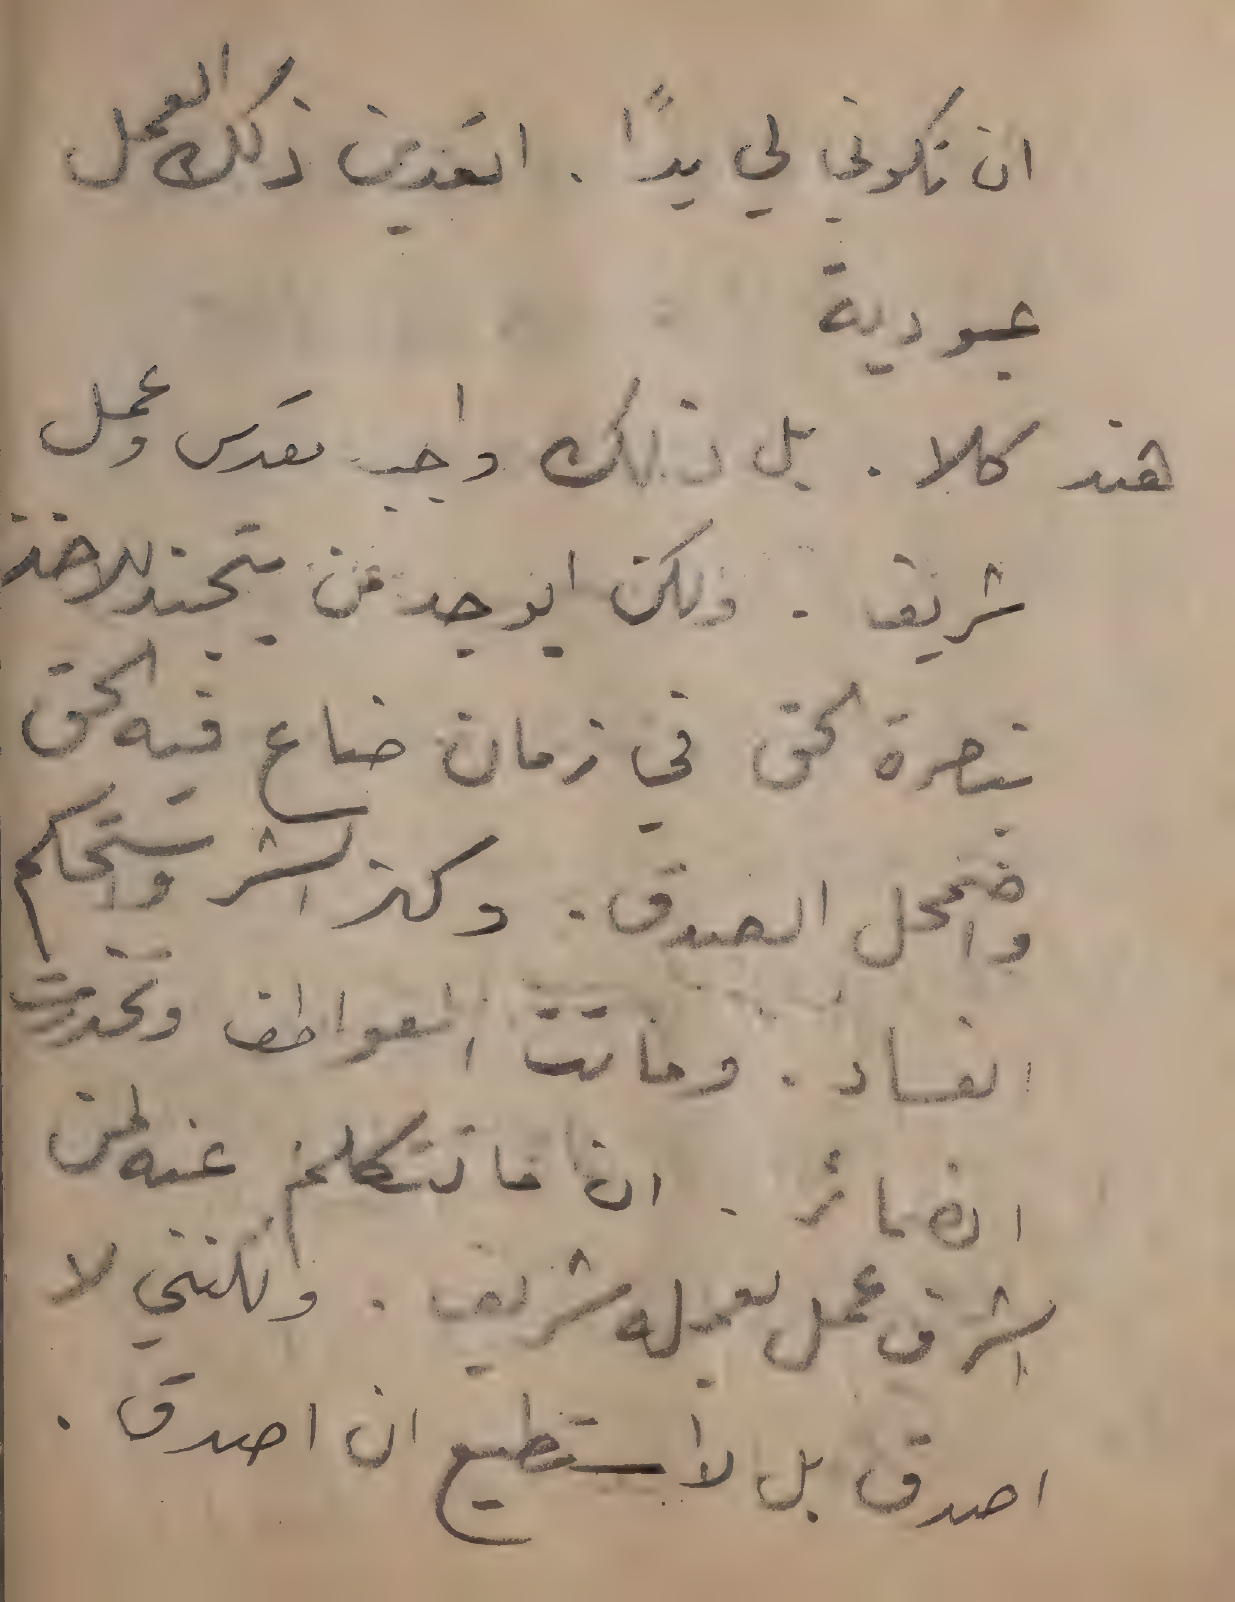 ان تكوني لي يدًا . اتعدين ذلك العمل
عبودية
هند كلا . بل ذلك واجب مقدس وعمل
شريف . ولكن ايوجد من يتجند للاخذ
بنصرة الحق في زمان ضاع فيه الحق
واضمحل الصدق . وكثر الشر واستحكم
الفساد . وماتت العواطف وتخدرت
الضمائر . ان ما تتكلم عنه لمن
اشرف عمل يعمله شريف . ولكنني لا
اصدق بل لا استطيع ان اصدق .